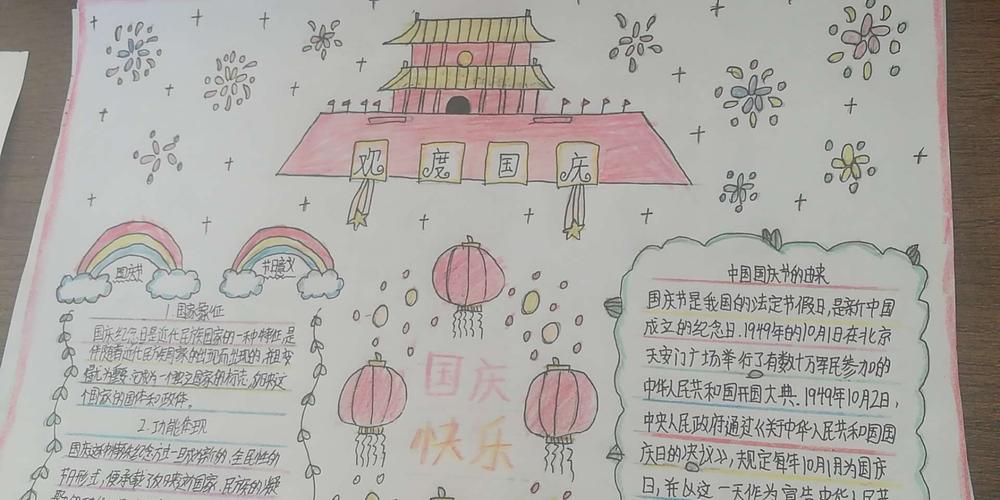 欢度国庆
国庆节
节日意义
1.国家象征
国庆纪念日是近代民族国家的一种特征,是
伴随着近代民族国家的出现而出现的,并且变
得尤为重要.它成为一个独立国家的标志,反映这
个国家的国体和政体。
2.功能体现
国庆这种特殊纪念方式一旦成为新的、全民性的
节日形式,便承载了反映这个国家、民族的凝
国庆
快乐
中国国庆节的由来
国庆节是我国的法定节假日,是新中国
成立的纪念日.1949年的10月1日在北京
天安门广场举行了有数十万军民参加的
中华人民共和国开国大典.1949年10月2日,
中央人民政府通过《关于中华人民共和国国
庆日的决议》,规定每年10月1日为国庆
日,并以这一天作为宣告中华人民共